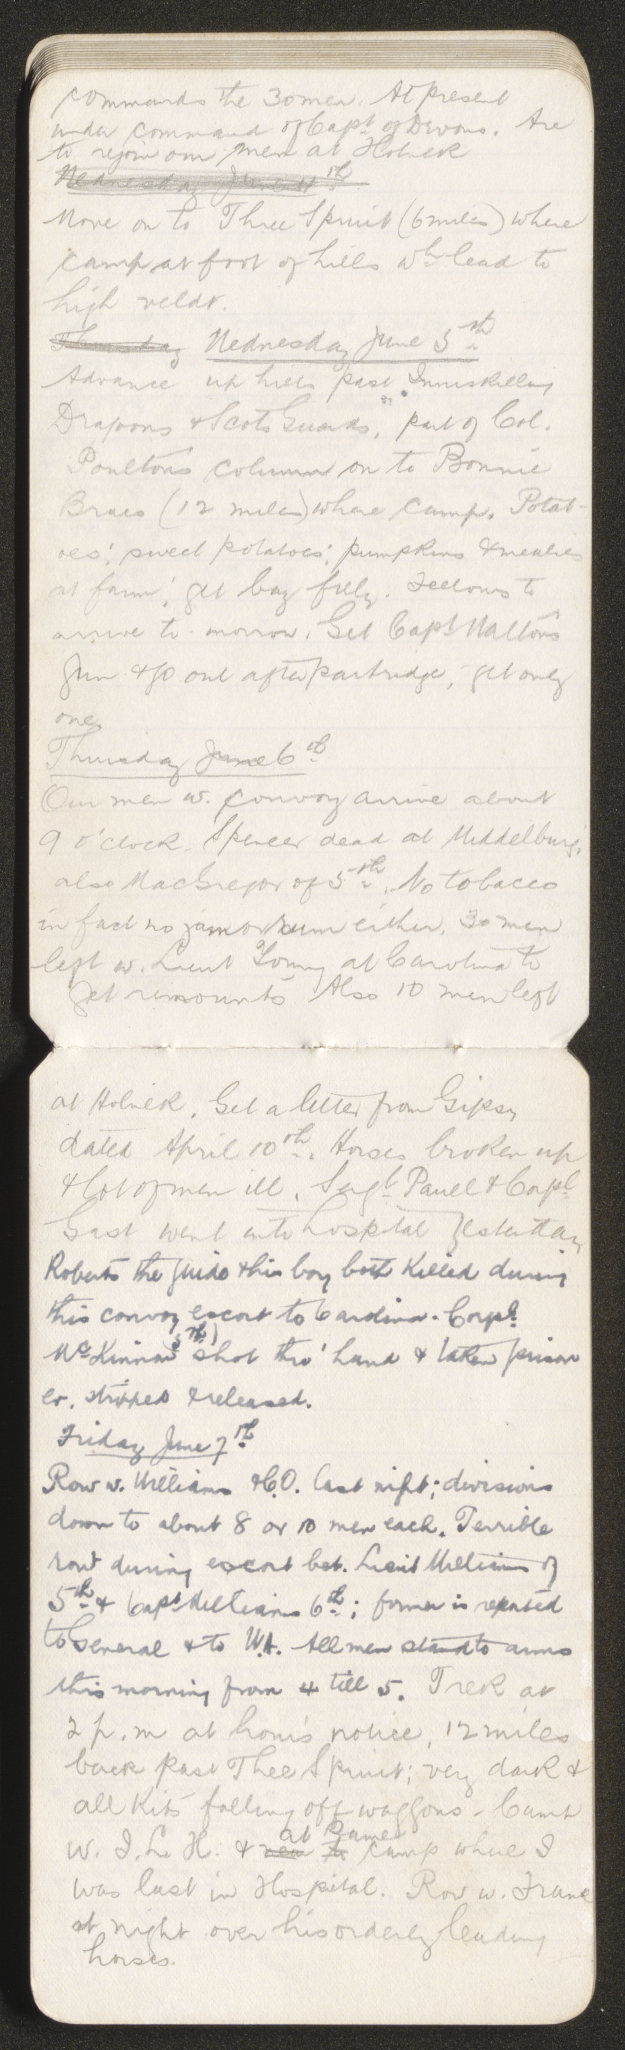 commands the 30 men. At present
under command of Capt of Devons. Are
to rejoin our men at Holnek
Wednesday June 4th
Move on to Three Spruit (6 miles) where
camp at foot of hills wh lead to
high veldt.
Thursday Wednesday June 5th
Advance up hills past Inniskilling
Dragoons & Scots Guards, part of Col.
Poulton's column on to Bonnie
Braes (12 miles) where camp. Potat-
oes', sweet potatoes', pumpkins & mealies
at farm', get bag full. Fellows to
arrive to-morrow. Get Capt Walton's
gun & go out after partridge, get only
one.
Thursday June 6th
Our men w. convoy arrive about
9 o'clock. Spencer dead at Middelburg,
also MacGregor of 5th. No tobacco
in fact no jam or rum either. 30 men
left w. Lieut Young at Carolina to
get remounts. Also 10 men left
at Holnek. Get a letter from Gipsy
dated April 10th. Horses broken up
& lot of men ill. Sergt Panell & Corpl
Gast went into hospital yesterday
Roberts the guide & his boy both killed during
this convoy escort to Carolina. Corpl
McKinnon (5th) shot thro' hand & taken prison
er, stripped & released.
Friday June 7th
Row w. Williams & C.O. last night; divisions
down to about 8 or 10 men each. Terrible
row during escort bet. Lieut Williams of
5th & Capt Williams 6th; former is reported
to General & to W.A. All men stand to arms
this morning from 4 till 5. Trek at
2 p.m at hour's notice, 12 miles
back past Thee Spruit; very dark &
all kits falling off waggons - Camp
w. I.L.H. & at same camp where I
was last in Hospital. Row w. Frank
at night over his orderly leading
horses.